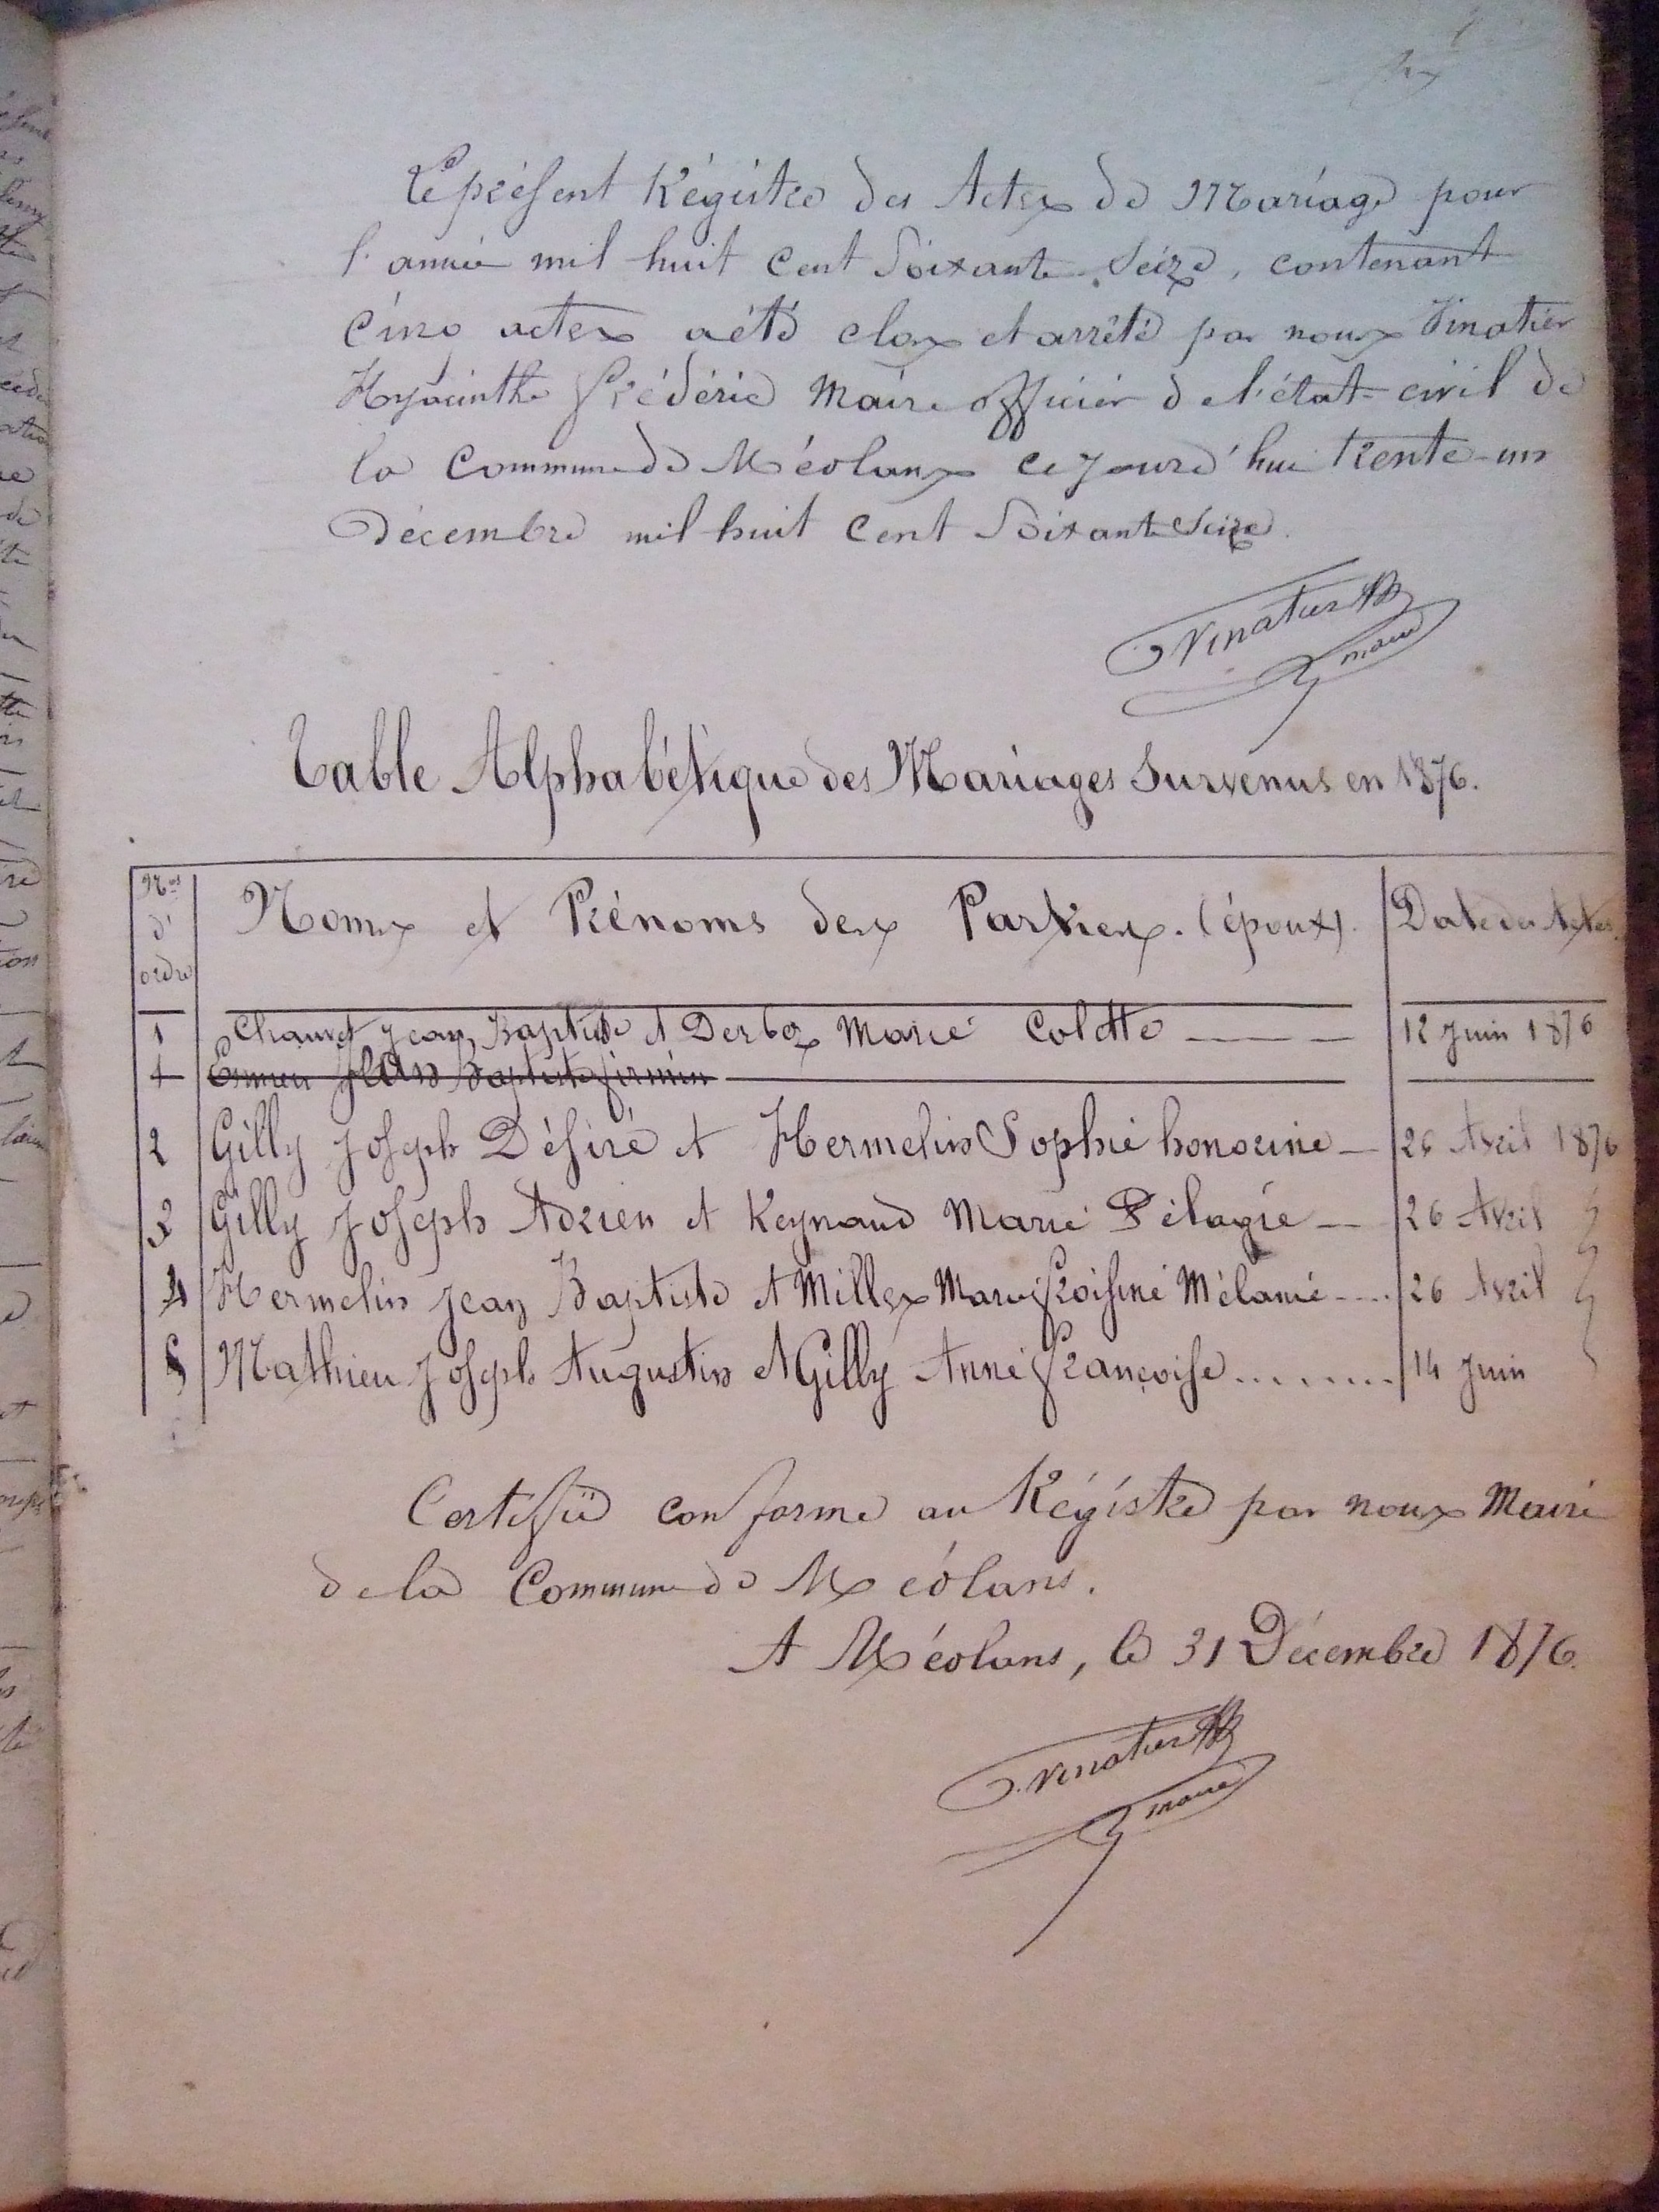 Le présent Régistre des Actes de Mariage pour
l'année mil huit cent Soixante Seize, contenant
cinq actes a été clos et arrêté par nous Vinatier
Hyacinthe frédéric Maire officier de l'état-civil de
la Commune de Méolans ce jourd'hui trente-un
Décembre mil huit Cent Soixante Seize.
Vinatier
maire
Table Alphabétique des Mariages Survenus en 1876.
Nos d'ordre | Noms et Prénoms des Parties. (époux). | Date des Actes.
1 Chauvet Jean Baptiste et Derbez Marie Colette 12 Juin 1876
1 Jean Baptiste firmin
2 Gilly Joseph Désiré et Hermelin Sophie honorine 26 Avril 1876
3 Gilly Joseph Adrien et Reynaud Marie Pélagie 26 Avril
4 Hermelin Jean Baptiste et Millex Marie froisine Mélanie 26 Avril
5 Mathieu Joseph Augustin et Gilly Anne françoise........ 14 Juin
Certifié conforme au Régistre par nous Maire
de la Commune de Méolans.
A Méolans, le 31 Décembre 1876.
Vinatier
maire